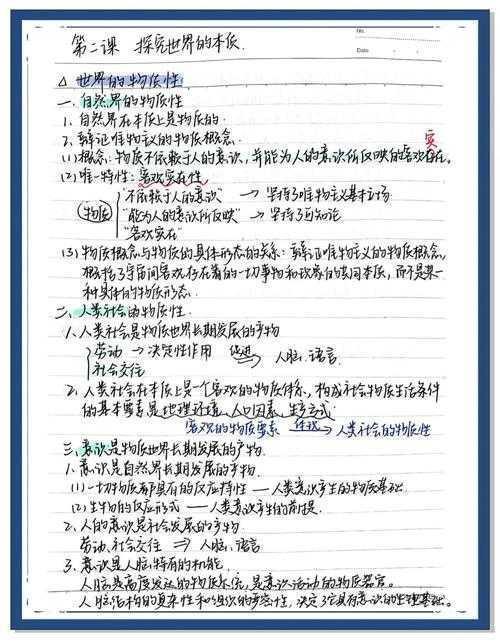 No.
Date
第二课 探究世界的本质.
△ 世界的物质性
一. 自然界的物质性
1. 自然界在本质上是物质的.
2. 辩证唯物主义的物质概念.
(1) 概念: 物质不依赖于人的意识, 并能为人的意识所反映的客观存在。
实
(2) 唯一特性: 客观实在性
物质
"不依赖于人的意识" → 坚持了唯物主义基本立场
"能为人的意识所反映" → 坚持了可知论
"客观实在"
(3) 物质概念与物质的具体形态的关系: 辩证唯物主义的物质概念,
概括了宇宙间客观存在着的一切事物和现象的共同本质, 而不是某一
种具体的物质形态.
二. 人类社会的物质性.
1. 人类社会是物质世界长期发展的产物
劳动 → 决定性作用 促进 人脑、语言.
社会交往
2. 人类社会在本质上是一个客观的物质体系, 构成社会物质生活条件
的基本要素是地理环境、人口因素、生产方式.
客观的物质要素 体现 → 人类社会的物质性
三. 意识是物质世界长期发展的产物.
1. 意识是自然界长期发展的产物.
(1) 一切物质都具有的反应特性 — 人类意识产生的物质基础
(2) 生物的反应形式 — 人类意识产生的前提.
2. 人的意识是社会发展的产物
劳动、社会交往 ⇒ 人脑、语言
3. 意识是人脑特有的机能.
人脑是高度发达的物质系统, 是意识活动的物质器官。
人脑结构的复杂性和组织的严密性, 决定了它具有意识的生理基础。